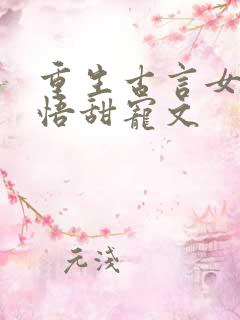 重生古言女
悟甜宠文
元浅